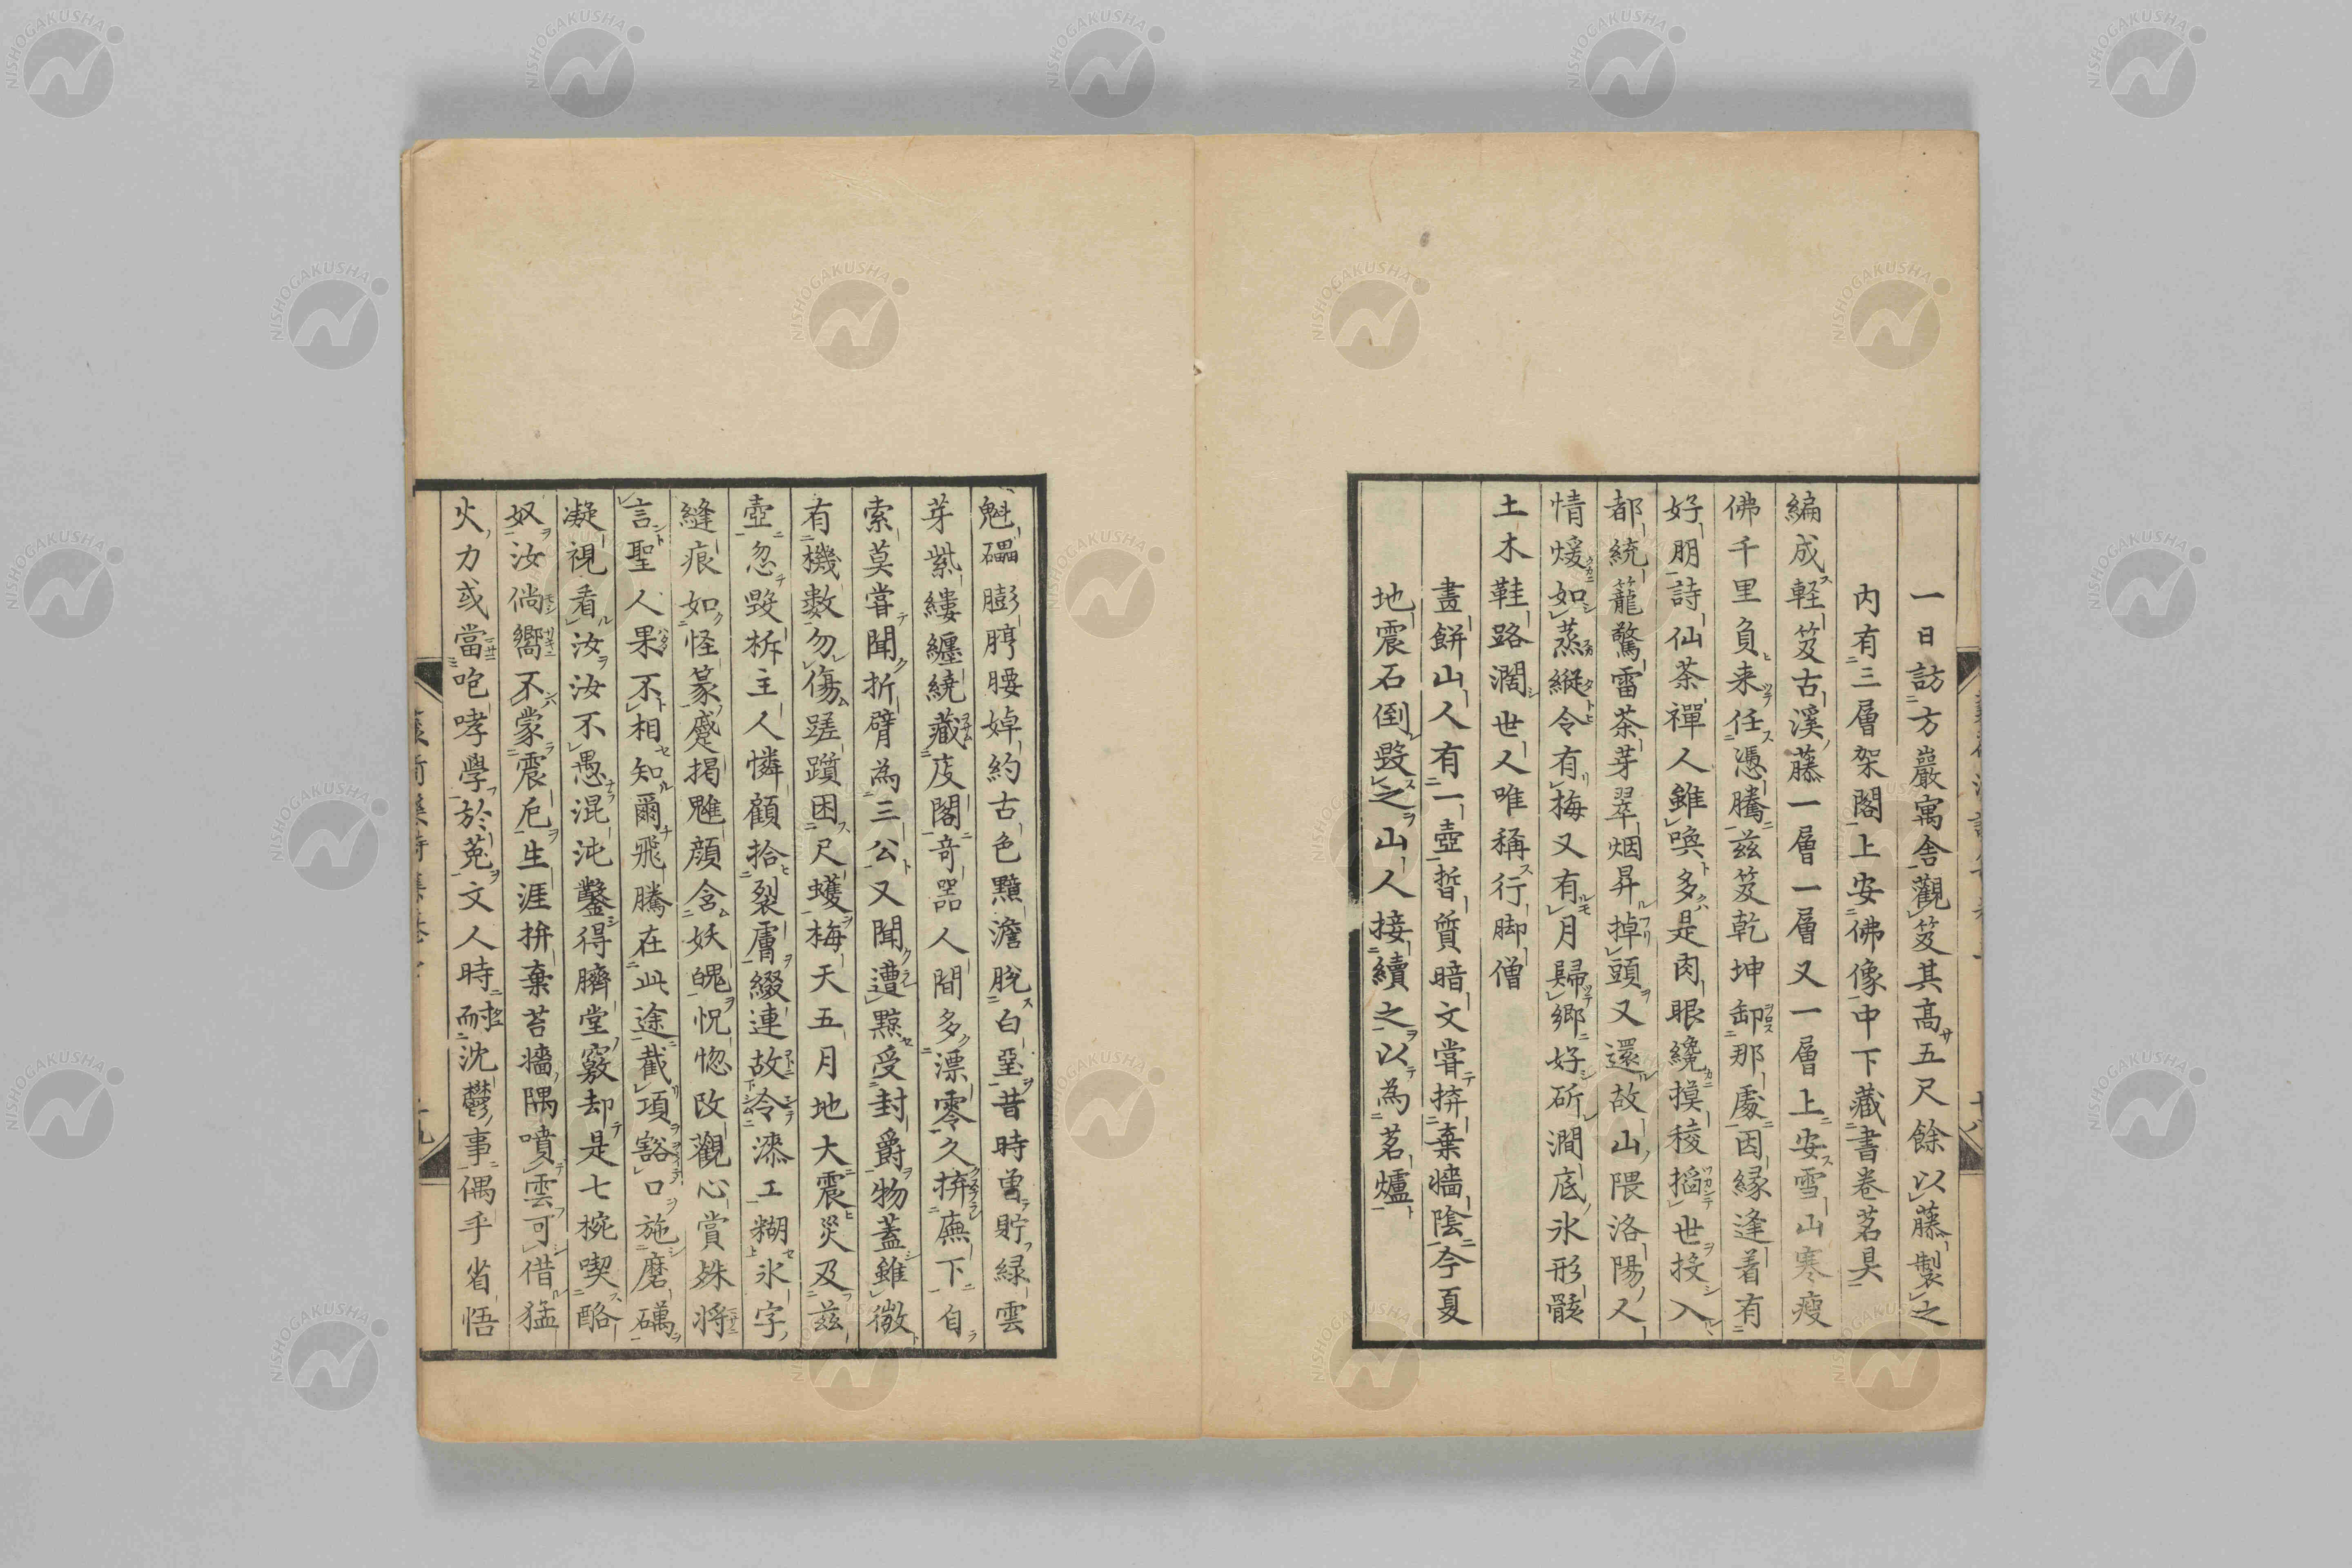 一日訪方巖寓舎觀笈其高五尺餘以藤製之
内有三層架閣上安佛像中下藏書巻茗具
編成輕笈古溪藤一層一層又一層上安雪山寒瘦
佛千里負来任憑騰茲笈乾坤卸那處因縁逢着有
好朋詩仙茶禪人雖喚多是肉眼纔摸稜搯世接入
都統籠驚雷茶芽翠烟昇掉頭又還故山隈洛陽人
情煖如蒸縦令有梅又有月歸郷好斫澗底氷形骸
土木鞋路濶世人唯稱行脚僧
畫餅山人有一壺晢質暗文嘗拚棄墻陰今夏
地震石倒毀之山人接續之以為茗爐
魁礧膨脝腰婥約古色黯澹脫白堊昔時曾貯緑雲
芽紫縷纏繞藏庋閣奇器人間多漂零久拚廡下自
索莫嘗聞折臂為三公又聞遭黥受封爵物蓋雖微
有機數勿傷蹉躓困尺蠖梅天五月地大震災及茲
壺忽毀柝主人憐顧拾裂膚綴連故冷漆工糊氷字
縫痕如怪篆蹙掲魋顔含妖魄怳惚改觀心賞姝將
言聖人果不相知爾飛騰在此途截項豁口施磨礪
凝視看汝汝不愚混沌鑿得臍堂竅却是七椀喫酪
奴汝倘嚮不蒙震厄生涯拚棄苔墻隅噴雲可借猛
火力或當咆哮學於菟文人時耐沈鬱事偶乎省悟
NISHOGAKUSHA